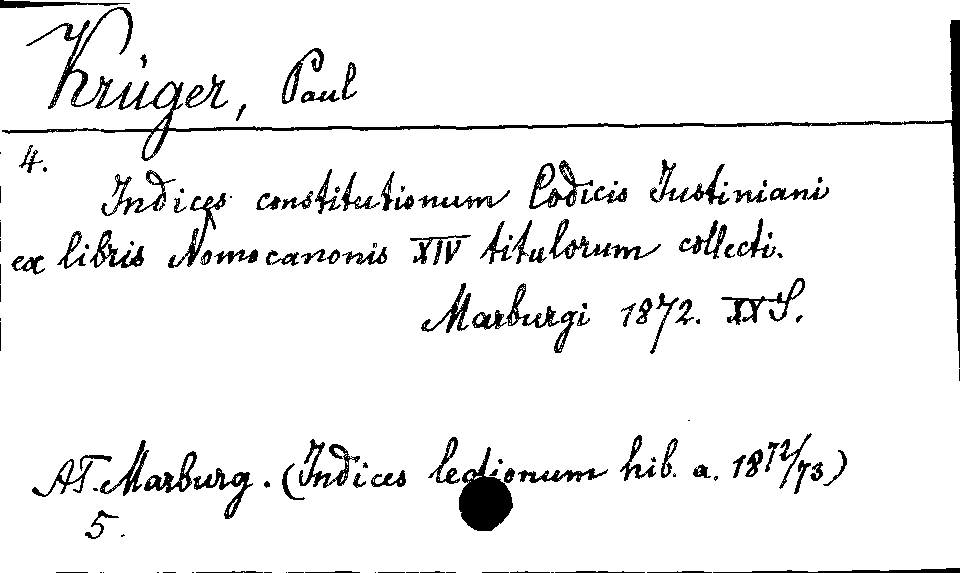 Krüger, Paul
4.
Indices constitutionum Codicis Iustiniani
ex libris Nomocanonis XIV titulorum collecti.
Marburgi 1872. XX S.
AT. Marburg. (Indices lectionum hib. a. 1872/73)
5.